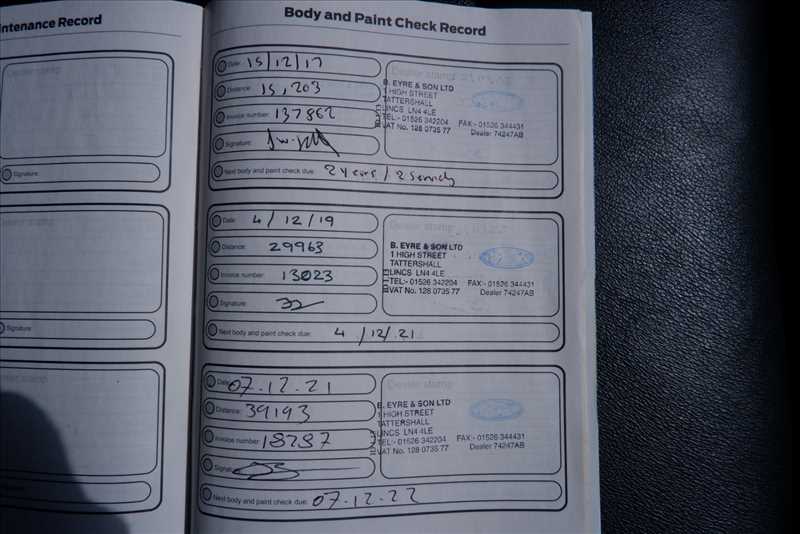 ntenance Record
Signature:
Signature
Body and Paint Check Record
Date: 15/12/17
Distance: 15,203
Invoice number: 137862
Signature:
Next body and paint check due: 2 years / 2 services
Dealer stamp
B. EYRE & SON LTD
1 HIGH STREET
TATTERSHALL
LINCS LN4 4LE
TEL:- 01526 342204 FAX:- 01526 344431
VAT No. 128 0735 77 Dealer 74247AB
Date: 4/12/19
Distance: 29963
Invoice number: 13023
Signature:
Next body and paint check due: 4/12/.21
Dealer stamp
B. EYRE & SON LTD
1 HIGH STREET
TATTERSHALL
LINCS LN4 4LE
TEL:- 01526 342204 FAX:- 01526 344431
VAT No. 128 0735 77 Dealer 74247AB
Date: 07.12.21
Distance: 39193
Invoice number: 18787
Signature:
Next body and paint check due: 07.12.22
Dealer stamp
B. EYRE & SON LTD
1 HIGH STREET
TATTERSHALL
LINCS LN4 4LE
TEL:- 01526 342204 FAX:- 01526 344431
VAT No. 128 0735 77 Dealer 74247AB